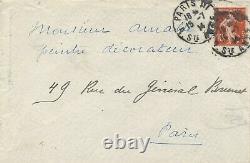 Monsieur Amar
peintre décorateur
49 Rue du Général Brunet
Paris
PARIS
18 -
15 - 1